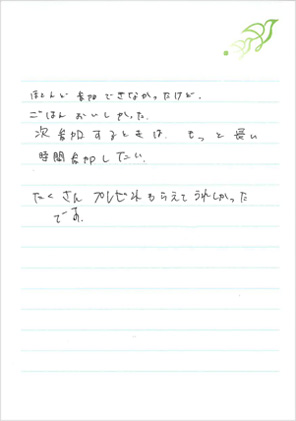 ほとんど参加できなかったけど、
ごはんおいしかった。
次参加するときは、もっと長い
時間参加したい。
たくさんプレゼントもらえてうれしかった
です。